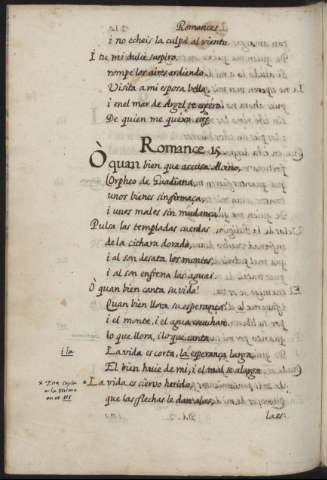 Romances.
i no echeis la culpa al viento.
I tu mi dulce suspiro,
rompe los aires ardiendo,
Visita a mi esposa bella,
i en el mar de Argel te espero.
De quien me quexo etc.
Romance 15
Ò quan bien que acusa Alcino,
Orpheo de Guadiana,
unos bienes sin firmeça,
i unos males sin mudança!
Pulsa las templadas cuerdas
de la cithara dorada,
i al son desata los montes,
i al son enfrena las aguas
O quan bien canta su vida!
Quan bien llora su esperança!
i el monte, i el agua escuchan
lo que llora, i lo que canta.
La vida es corta, la esperança larga,
El bien huie de mi, i el mal se alarga
La vida es ciervo herido,
que las flechas le dan alas,
las es-